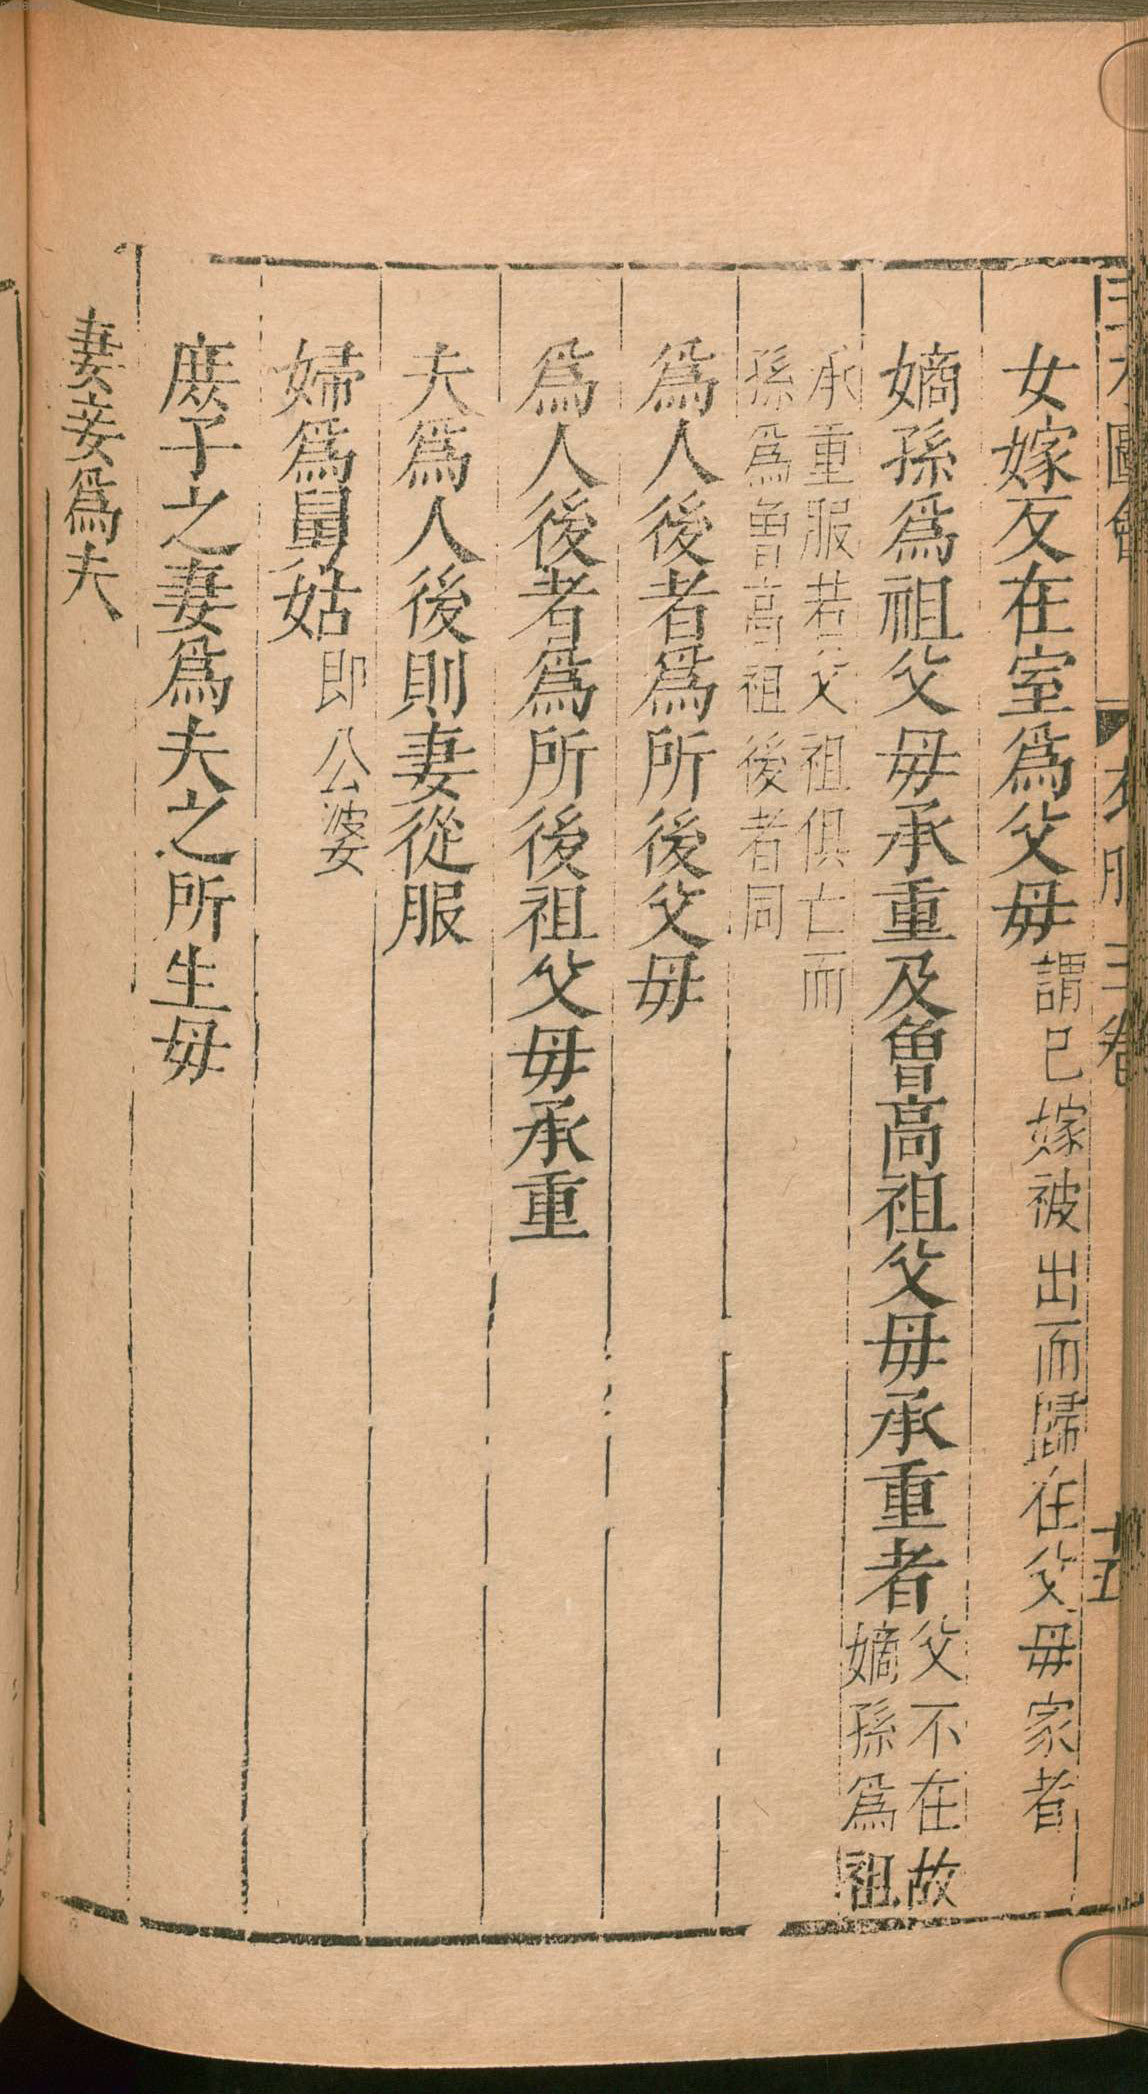 三才圖會 衣服三卷 十五
女嫁反在室爲父母謂已嫁被出而歸在父母家者
嫡孫爲祖父母承重及曾高祖父母承重者父不在故嫡孫爲祖
承重服若父祖俱亡而孫爲曾高祖後者同
爲人後者爲所後父母
爲人後者爲所後祖父母承重
夫爲人後則妻從服
婦爲舅姑即公婆
庶子之妻爲夫之所生母
妻妾爲夫